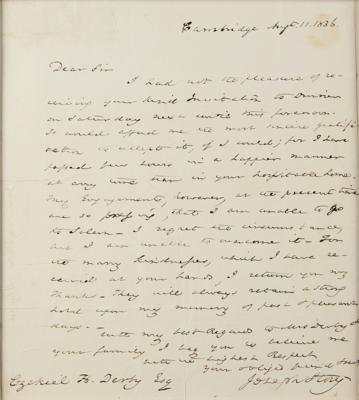 Cambridge Augt. 11. 1836.
Dear Sir
I had not the pleasure of re-
ceiving your kind Invitation to Dinner
on Saturday next until this forenoon.
It would afford me the most sincere gratifi-
cation to accept it, if I could; for I have
passed few hours in a happier manner
at any time than in your hospitable home.
My Engagements, however, at the present time
are so pressing, that I am unable to go
to Salem — I regret the circumstance,
but I am unable to overcome it — For
the many kindnesses, which I have re-
ceived at your hands, I return you my
thanks — They will always retain a strong
hold upon my memory of past & pleasant
days —
with my best Regard to Mrs Derby &
your family I beg you to believe me
with the highest Respect
your obliged friend
Ezekiel H. Derby Esq
Joseph Story